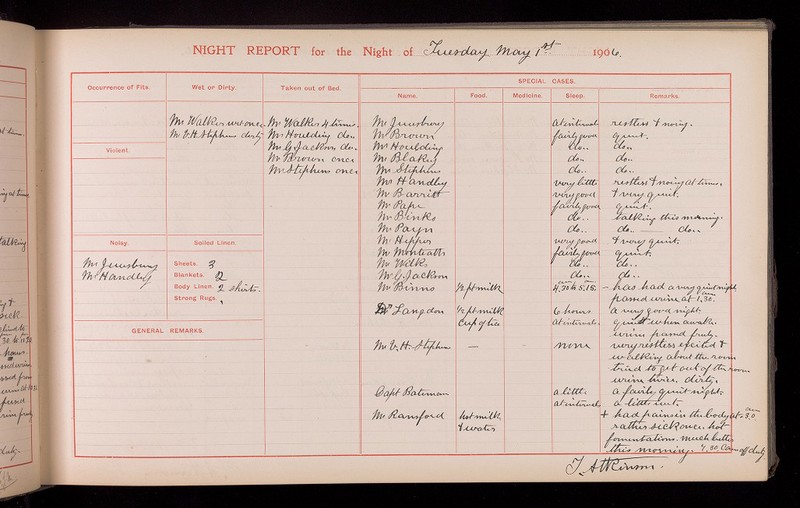 NIGHT REPORT for the Night of Tuesday May 1st 1906.
Occurrence of Fits.
Wet or Dirty.
Taken out of Bed.
SPECIAL CASES.
Name.
Food.
Medicine.
Sleep.
Remarks.
Mr Walker wet once
Mr V. H. Stephens dirty
Mr Walker 4 times.
Mr Houlding do..
Mr G Jackson do..
Mr Brown once
Mr Stephens once
Violent.
Noisy.
Mr Jewsbury
Mr Handley
Soiled Linen.
Sheets. 3
Blankets. 2
Body Linen. 2 shirts.
Strong Rugs.
GENERAL REMARKS.
Mr Jewsbury at intervals restless & noisy.
Mr Brown fairly good quiet.
Mr Houlding do.. do..
Mr Blakey do.. do..
Mr Stephens do.. do..
Mr Handley very little restless & noisy at times.
Mr Barritt very good & very quiet.
Mr Pape fairly good quiet.
Mr Binks do.. talking this morning.
Mr Payn do.. do. do..
Mr Hepper very good & very quiet.
Mr Monteatts fairly good quiet.
Mr Wilks do.. do..
Mr G. Jackson do.. do..
Mr Binns ½ pt milk 4,30 to 5,15. - has had a very quiet night
passed urine at 1,30.
Dr Langdon ½ pt milk 6 hours a very good night
Cup of tea at intervals. quiet when awake.
urine passed freely.
Mr V. H. Stephens — — none very restless excited &
walking about the room
tried to get out of the room
urine twice, dirty.
Capt Bateman a little a fairly quiet night.
at intervals a little
Mr Ransford hot milk + had pains in the body at 3,0 am
& water rather sick once. hot
fomentations. much better
this morning. 7,30 am off duty
T. Atkinson.